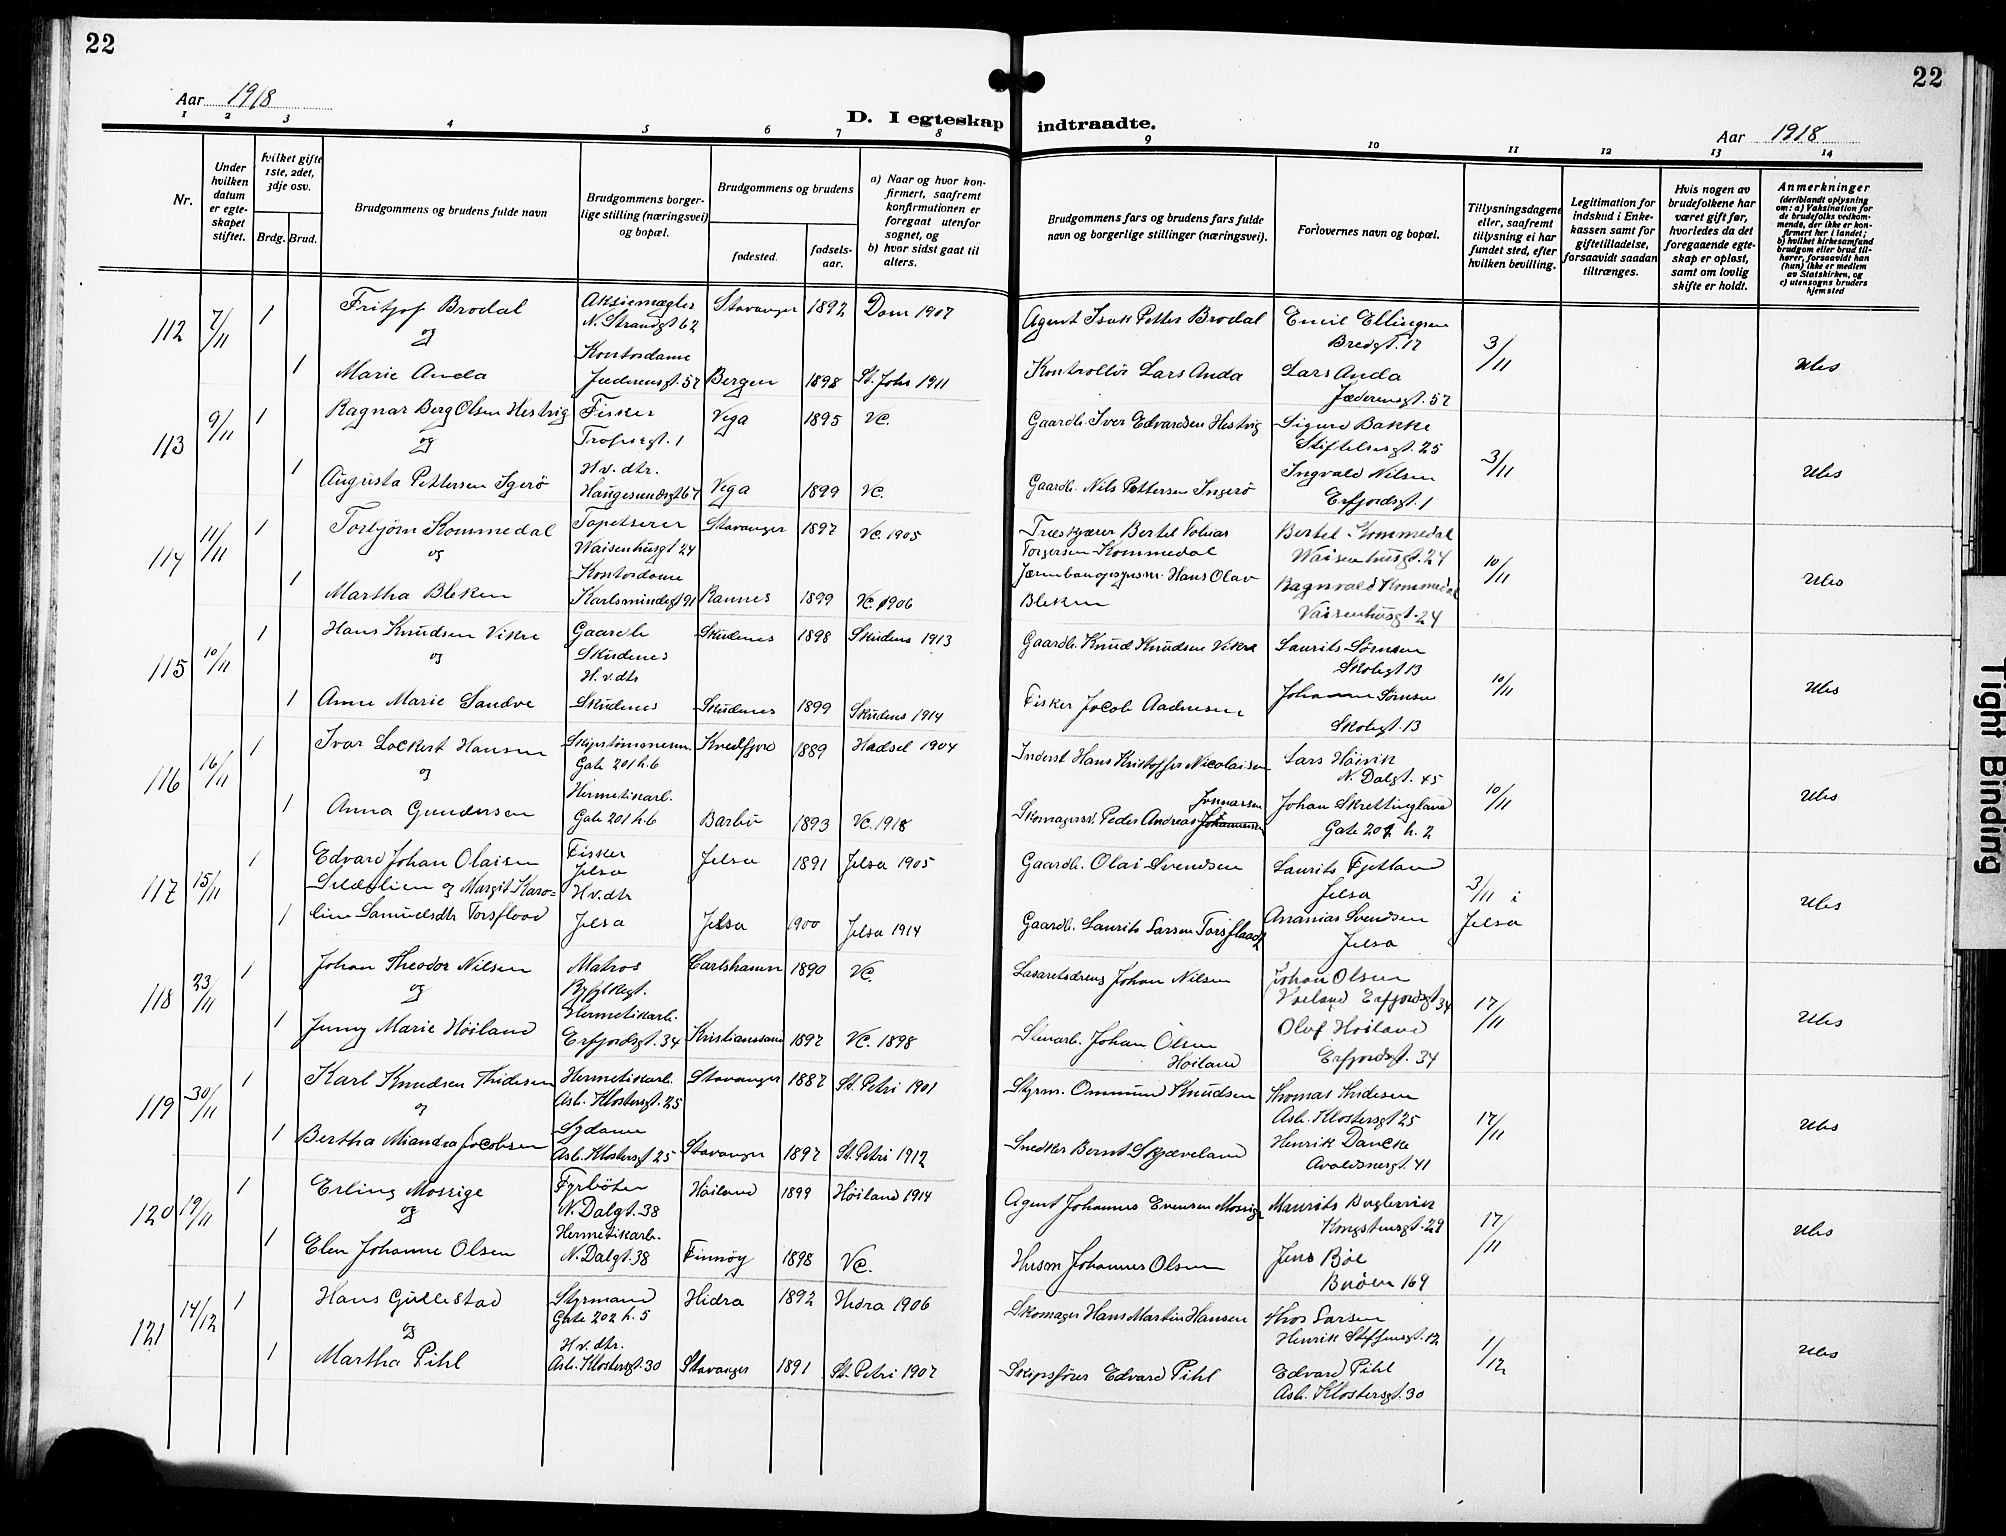 22
22
Aar 1918
Aar 1918
D. I egteskap indtraadte.
1 2 3 4 5 6 7 8 9 10 11 12 13 14
Nr.
Under hvilken datum er egteskapet stiftet.
Hvilket gifte 1ste, 2det, 3dje osv.
Brdg. Brud.
Brudgommens og brudens fulde navn
Brudgommens borgerlige stilling (næringsvei) og bopæl.
Brudgommens og brudens
fødested.
fødselsaar.
a) Naar og hvor konfirmert, saafremt konfirmationen er foregaat utenfor sognet, og
b) hvor sidst gaat til alters.
Brudgommens fars og brudens fars fulde navn og borgerlige stillinger (næringsvei).
Forlovernes navn og bopæl.
Tillysningsdagene eller, saafremt tillysning ei har fundet sted, efter hvilken bevilling.
Legitimation for indskud i Enkekassen samt for giftetilladelse, forsaavidt saadan tiltrænges.
Hvis nogen av brudefolkene har været gift før, hvorledes da det foregaaende egteskap er opløst, samt om lovlig skifte er holdt.
Anmerkninger
(deriblandt oplysning om: a) Vaksination for de brudefolks vedkommende, der ikke er konfirmert her i landet; b) hvilket kirkesamfund brudgom eller brud tilhører, forsaavidt han (hun) ikke er medlem av Statskirken, og c) utensogns bruders hjemsted
112 7/11 1 Fritjof Brodal Aktiemægler N. Strandgt 62 Stavanger 1892 Dom 1907 Agent Isak Petter Brodal Emil Ellingsen Bredgt. 17 3/11
og
1 Marie Anda Kontordame Jæderensgt. 57 Bergen 1898 St. Johs 1911 Kontrollör Lars Anda Lars Anda Jæderensgt. 57 Ubs
113 9/11 1 Ragnar Berg Olsen Hestvig Fisker Vega 1895 Vc. Gaardb. Iver Edvardsen Hestvig Sigurd Bakke Stiftelsesgt. 25 3/11
og
1 Augusta Pettersen Igerö H.v.dtr. Haugesundsgt 67 Vega 1899 Vc. Gaardb. Nils Pettersen Ingerö Ingvald Nilsen Erfjordsgt. 1 Ubs
114 11/11 1 Torbjørn Kommedal Tapetserer Waisenhusgt 24 Stavanger 1897 Vc. 1905 Træskjærer Bertel Torgersen Kommedal Bertel Kommedal Waisenhusgt. 24 10/11
og
1 Martha Bleken Kontordame Karlsmindegt 91 Rannes 1899 Vc. 1906 Hans Olav Bleken Ragnvald Kommedal Vaisenhusgt. 24 Ubs
115 10/11 1 Hans Knudsen Vikre Gaardb Skudenes Skudenes 1898 Skudens 1913 Gaardb. Knud Knudsen Vikre Laurits Sørnsen Skolegt 13 10/11
og
1 Anne Marie Sandve H.v.dtr Skudenes Skudenes 1899 Skudens 1914 Fisker Jacob Aadnesen Johanne Sørnsen Skolegt. 13 Ubs
116 16/11 1 Ivar Lockert Hansen Skipstømmerm. Gate 201 h. 6 Kvedfjord 1889 Hadsel 1904 Inderst Hans Kristoffer Nicolaisen Lars Höivik N. Dalgt. 45 10/11
og
1 Anna Gundersen Hermetikarb. Gate 201 h. 6 Barbu 1893 Vc. 1918 Skomagersv. Peder Andreas Johannesen Gunnarsen Johan Skrettingland Gate 202 h. 2 Ubs
117 15/11 1 Edvard Johan Olaisen Fisker Jelsa Jelsa 1891 Jelsa 1905 Gaardb. Olai Svendsen Laurits Fjetland Jelsa 3/11 i Jelsa
og Margit Karo=
1 line Samuelsdtr Torsflaad H.v.dtr Jelsa Jelsa 1900 Jelsa 1914 Gaardb. Laurits Larsen Torsflaad Ananias Svendsen Jelsa Ubs
118 23/11 1 Johan Theodor Nilsen Matros Byfjtkgt. Carlshamn 1890 Vc. Lasaretsdreng Johan Nilsen Johan Olsen Erfjordsgt 34 17/11
og
1 Jenny Marie Höiland Hermetikarb. Erfjordsgt. 34 Kristianssand 1897 Vc. 1898 Johan Olsen Höiland Olaf Höiland Erfjordsgt. 34 Ubs
119 30/11 1 Karl Knudsen Thidesen Hermetikarb. Asb. Klostersgt. 25 Stavanger 1887 St. Petri 1901 Styrm. Ommund Knudsen Thomas Thidesen Asb. Klostersgt 25 17/11
og
1 Bertha Miandra Jacobsen Sydame Asb. Klostersgt 25 Stavanger 1897 St. Petri 1912 Snedker Bernt Skjæveland Henrik Dancke Avaldsnesgt. 41 Ubs
120 19/11 1 Erling Mossige Fyrböter N. Dalgt. 38 Höiland 1899 Höiland 1914 Agent Johannes Evensen Mossige Maurits Kongstensgt. 29 17/11
og
1 Elen Johanne Olsen Hermetikarb. N. Dalgt. 38 Finnöy 1898 Vc. Husm Johannes Olsen Jens Böe Buöen 169 Ubs
121 14/12 1 Hans Gullestad Styrmand Gate 202 h. 5 Hidra 1892 Hidra 1906 Skomager Hans Martin Hansen Thos Larsen Henrik Steffensgt. 12 1/12
og
1 Martha Pihl H.v.dtr. Asb. Klostersgt. 30 Stavanger 1891 St. Petri 1907 Skipsfører Edvard Pihl Edvard Pihl Asb. Klostersgt. 30 Ubs
Tight Binding